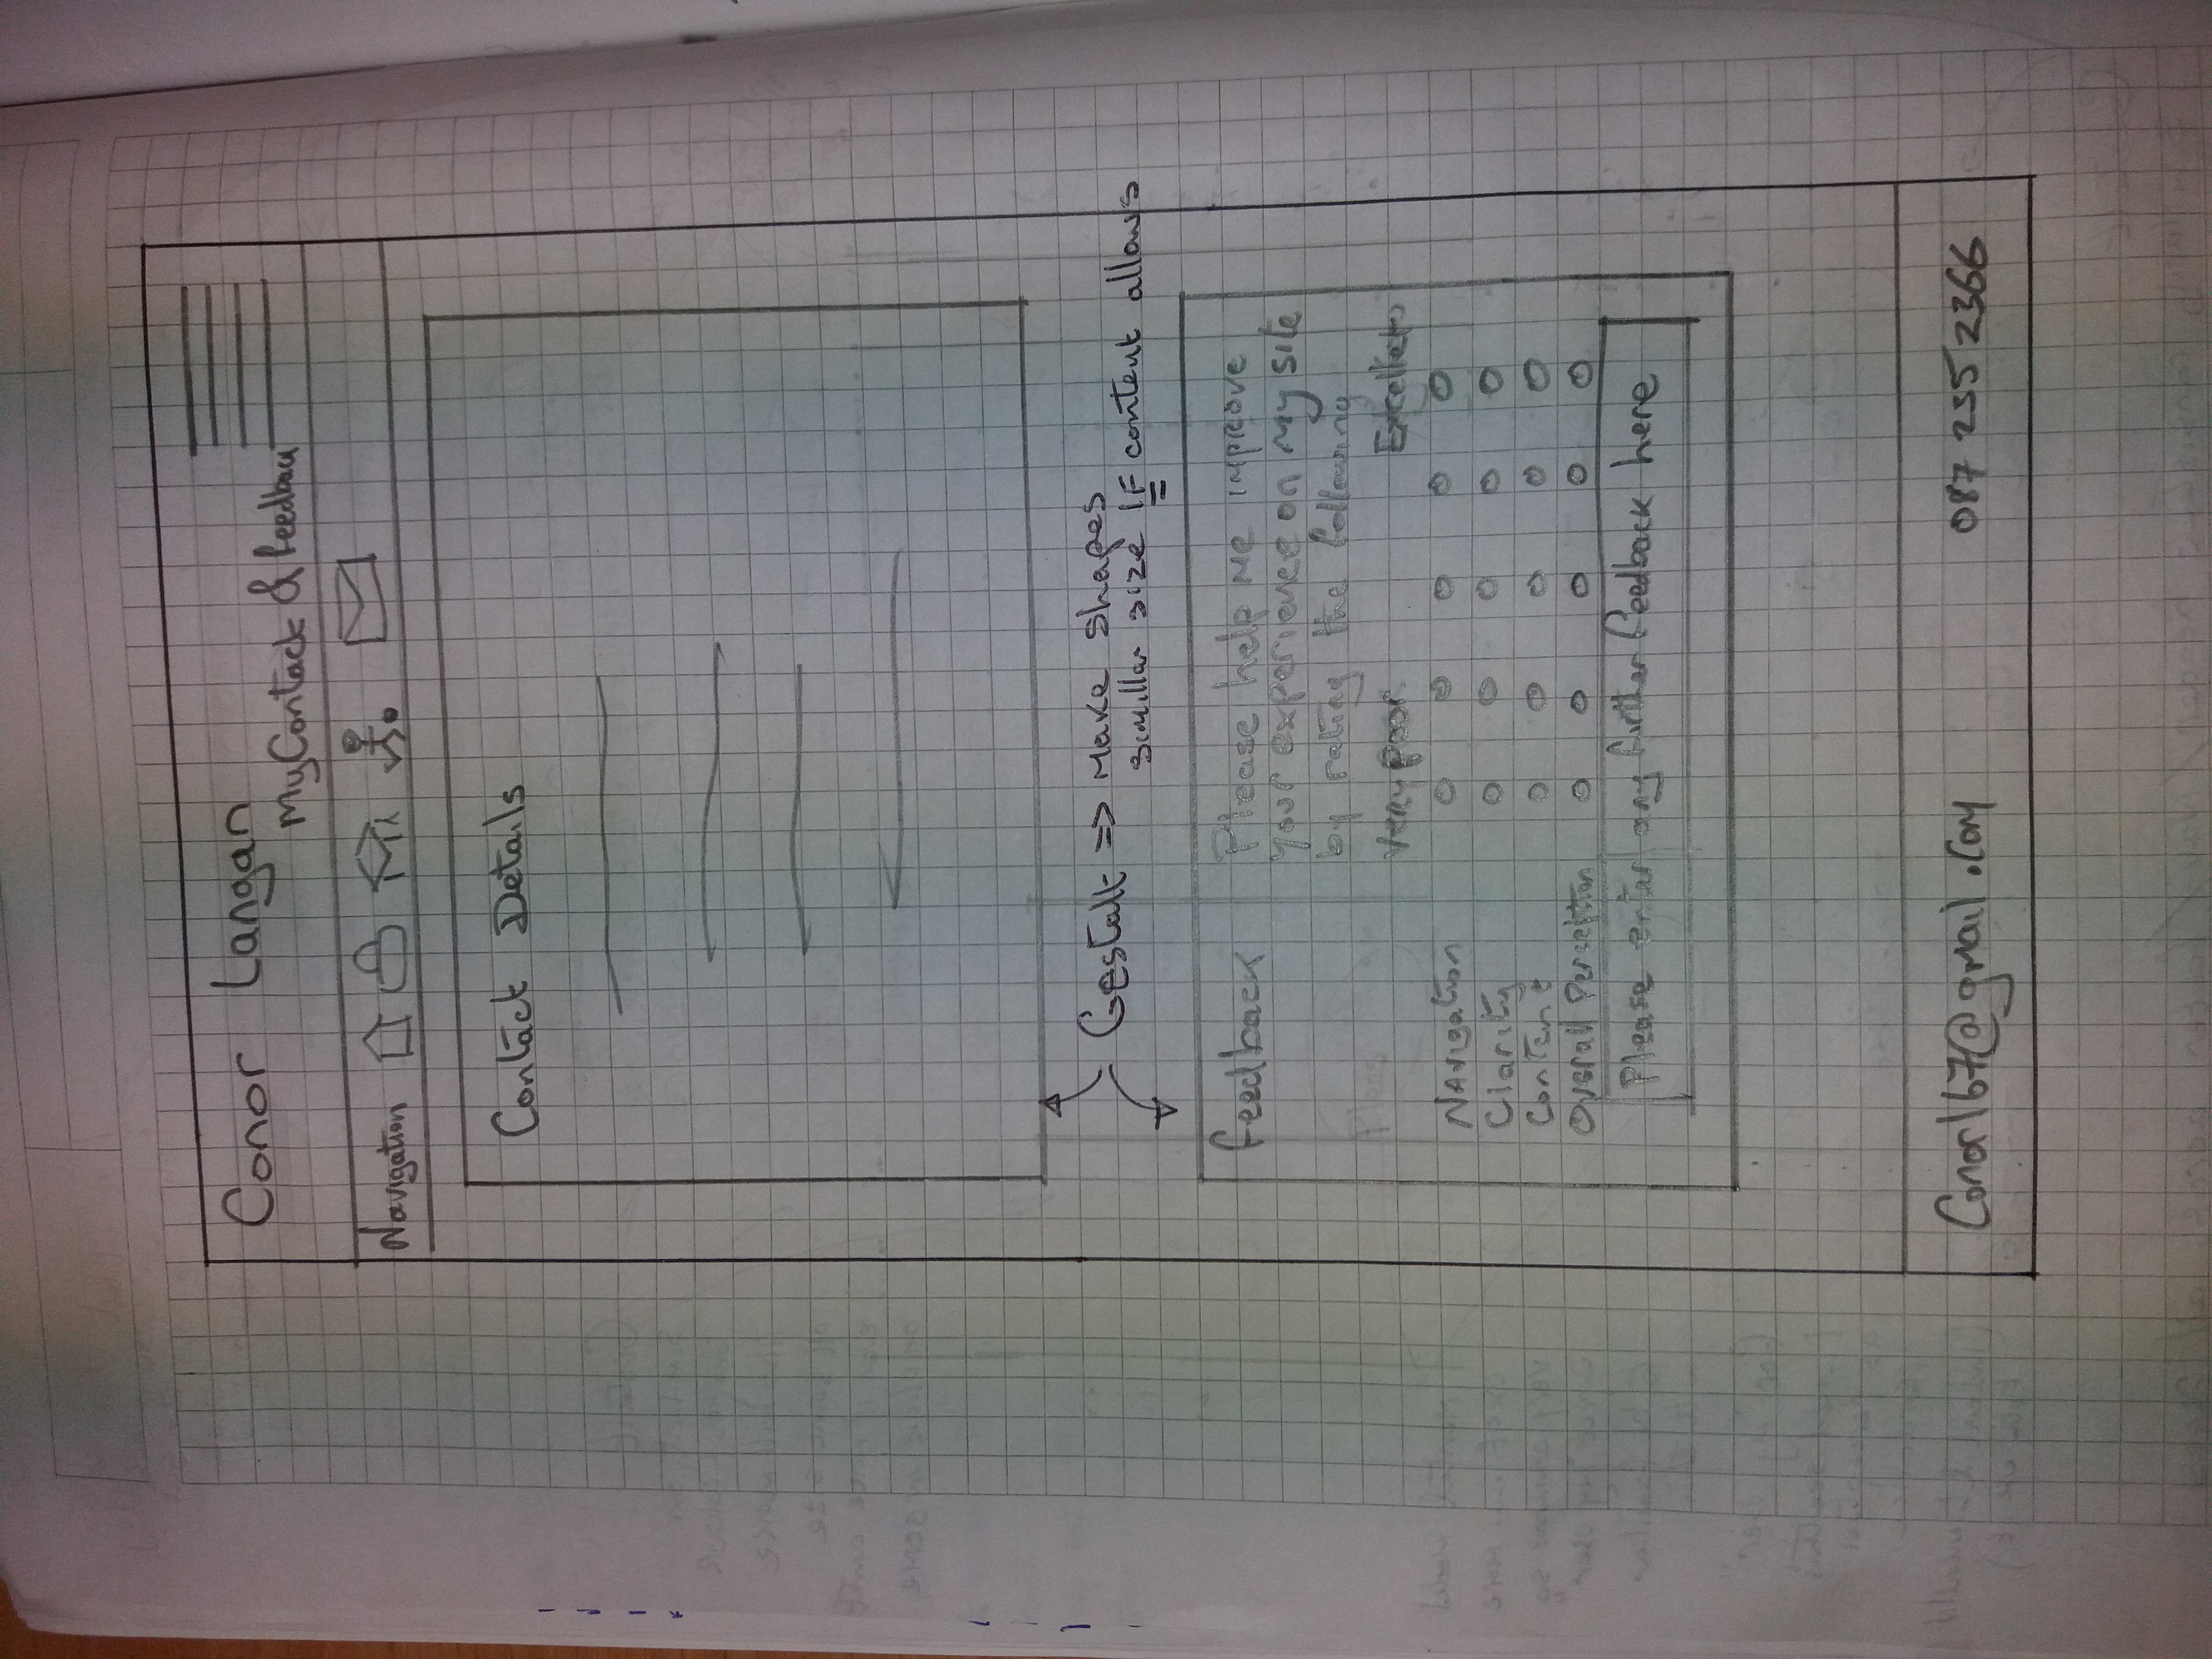 Conor Langan
My Contack & feedback
Navigation
Contact Details
Gestalt => Make shapes
simillar size IF content allows
feedback Please help me improve
your experience on my site
by rating the following
Very poor Excellent
Navigation
Clarity
Content
Overall Perception
Please enter any further feedback here
Conor167@gmail.com 087 2352366